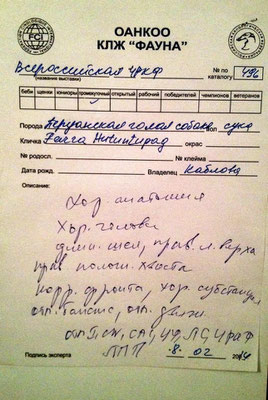 ОАНКОО
КЛЖ "ФАУНА"
FCI
Всероссийская УРКФ
(название выставки)
№ по каталогу 496
беби щенки юниоры промежуточный открытый рабочий победителей чемпионов ветеранов
Порода Перуанская голая собака пол сука
Кличка окрас
№ родосл. № клейма
Дата рожд. Владелец Каблова
Описание:
Хор. анатомия
Хор. голова
длин. шея, прав. л. верха
прав. полож. хвоста
корр. фронта, хор. субстанция
отл. баланс, отл. движ.
отл. ПСЖ, САС, ЧРКФ
ЛПП 8. 02 2014
Подпись эксперта